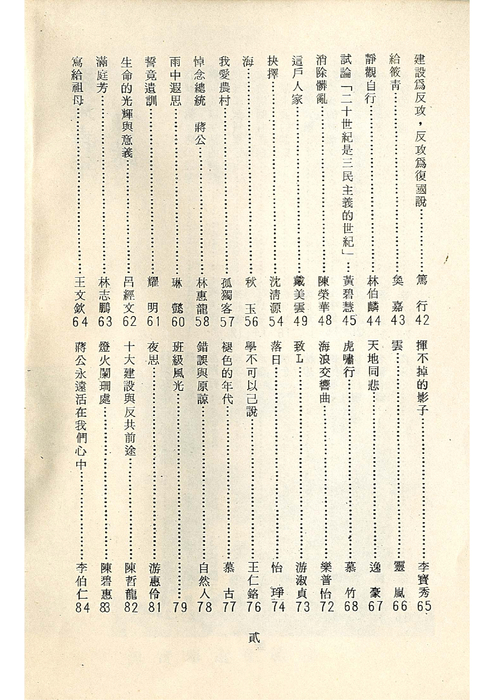 建設爲反攻，反攻爲復國說……篤　行42
給筱青……奐　嘉43
靜觀自行……林伯麟44
試論「二十世紀是三民主義的世紀」…黃碧慧45
消除髒亂……陳榮華48
這戶人家……戴美雲49
抉擇……沈清源54
海……秋　玉56
我愛農村……孤獨客57
悼念總統　蔣公……林惠龍58
雨中遐思……琳　懿60
誓竟遺訓……耀　明61
生命的光輝與意義……呂經文62
滿庭芳……林志鵬63
寫給祖母……王文欽64
揮不掉的影子……李寶秀65
雲……靈　嵐66
天地同悲……逸　豪67
虎嘯行……慕　竹68
海浪交響曲……樂普怡72
致L……游淑貞73
落日……怡　琤74
學不可以已說……王仁銘76
褪色的年代……慕　古77
錯誤與原諒……自然人78
班級風光……79
夜思……游惠伶81
十大建設與反共前途……陳哲龍82
燈火闌珊處……陳碧惠83
蔣公永遠活在我們心中……李伯仁84
貳